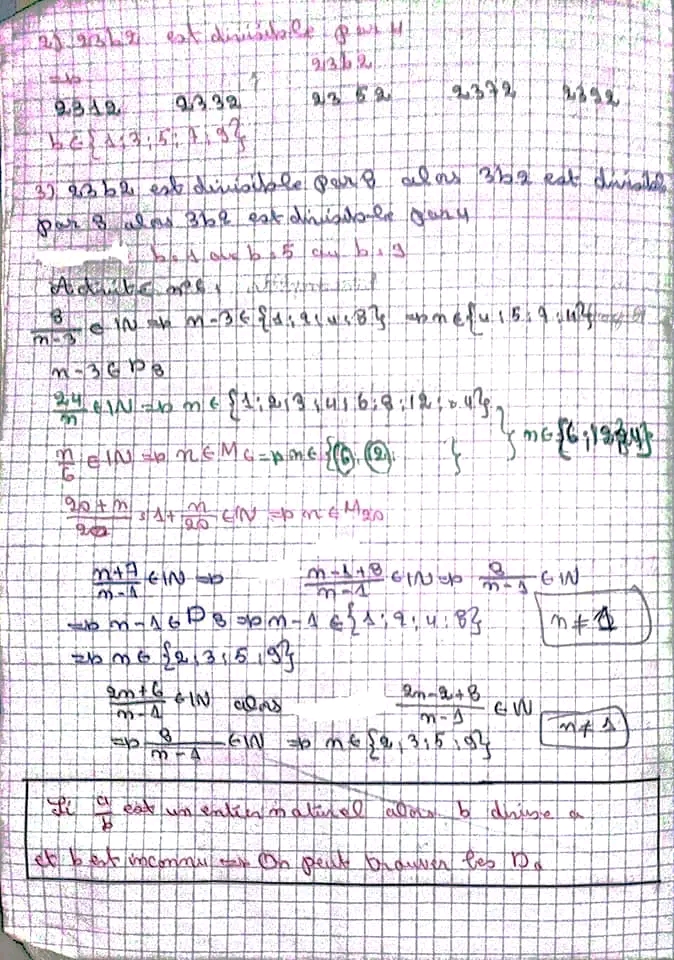 2) 23b2 est divisible par 4
23b2
=>
2312 2332 2352 2372 2392
b ∈ {1; 3; 5; 7; 9}
3) 23b2 est divisible par 8 alors 3b2 est divisible
par 8 alors 3b2 est divisible par 4
b = 1 ou b = 5 ou b = 9
8/(n-3) ∈ IN => n-3 ∈ {1; 2; 4; 8} => n ∈ {4; 5; 7; 11}
n-3 ∈ D8
24/n ∈ IN => n ∈ {1; 2; 3; 4; 6; 8; 12; 24}
} n ∈ {6; 12; 24}
n/6 ∈ IN => n ∈ M6 => n ∈ {6; 12; }
(20+n)/20 = 1 + n/20 ∈ IN => n ∈ M20
(n+7)/(n-1) ∈ IN => (n-1+8)/(n-1) ∈ IN => 8/(n-1) ∈ IN
=> n-1 ∈ D8 => n-1 ∈ {1; 2; 4; 8} n ≠ 1
=> n ∈ {2; 3; 5; 9}
(2n+6)/(n-1) ∈ IN alors (2n-2+8)/(n-1) ∈ IN
=> 8/(n-1) ∈ IN => n ∈ {2; 3; 5; 9} n ≠ 1
Si a/b est un entier naturel alors b divise a
et b est inconnu => On peut trouver les Da